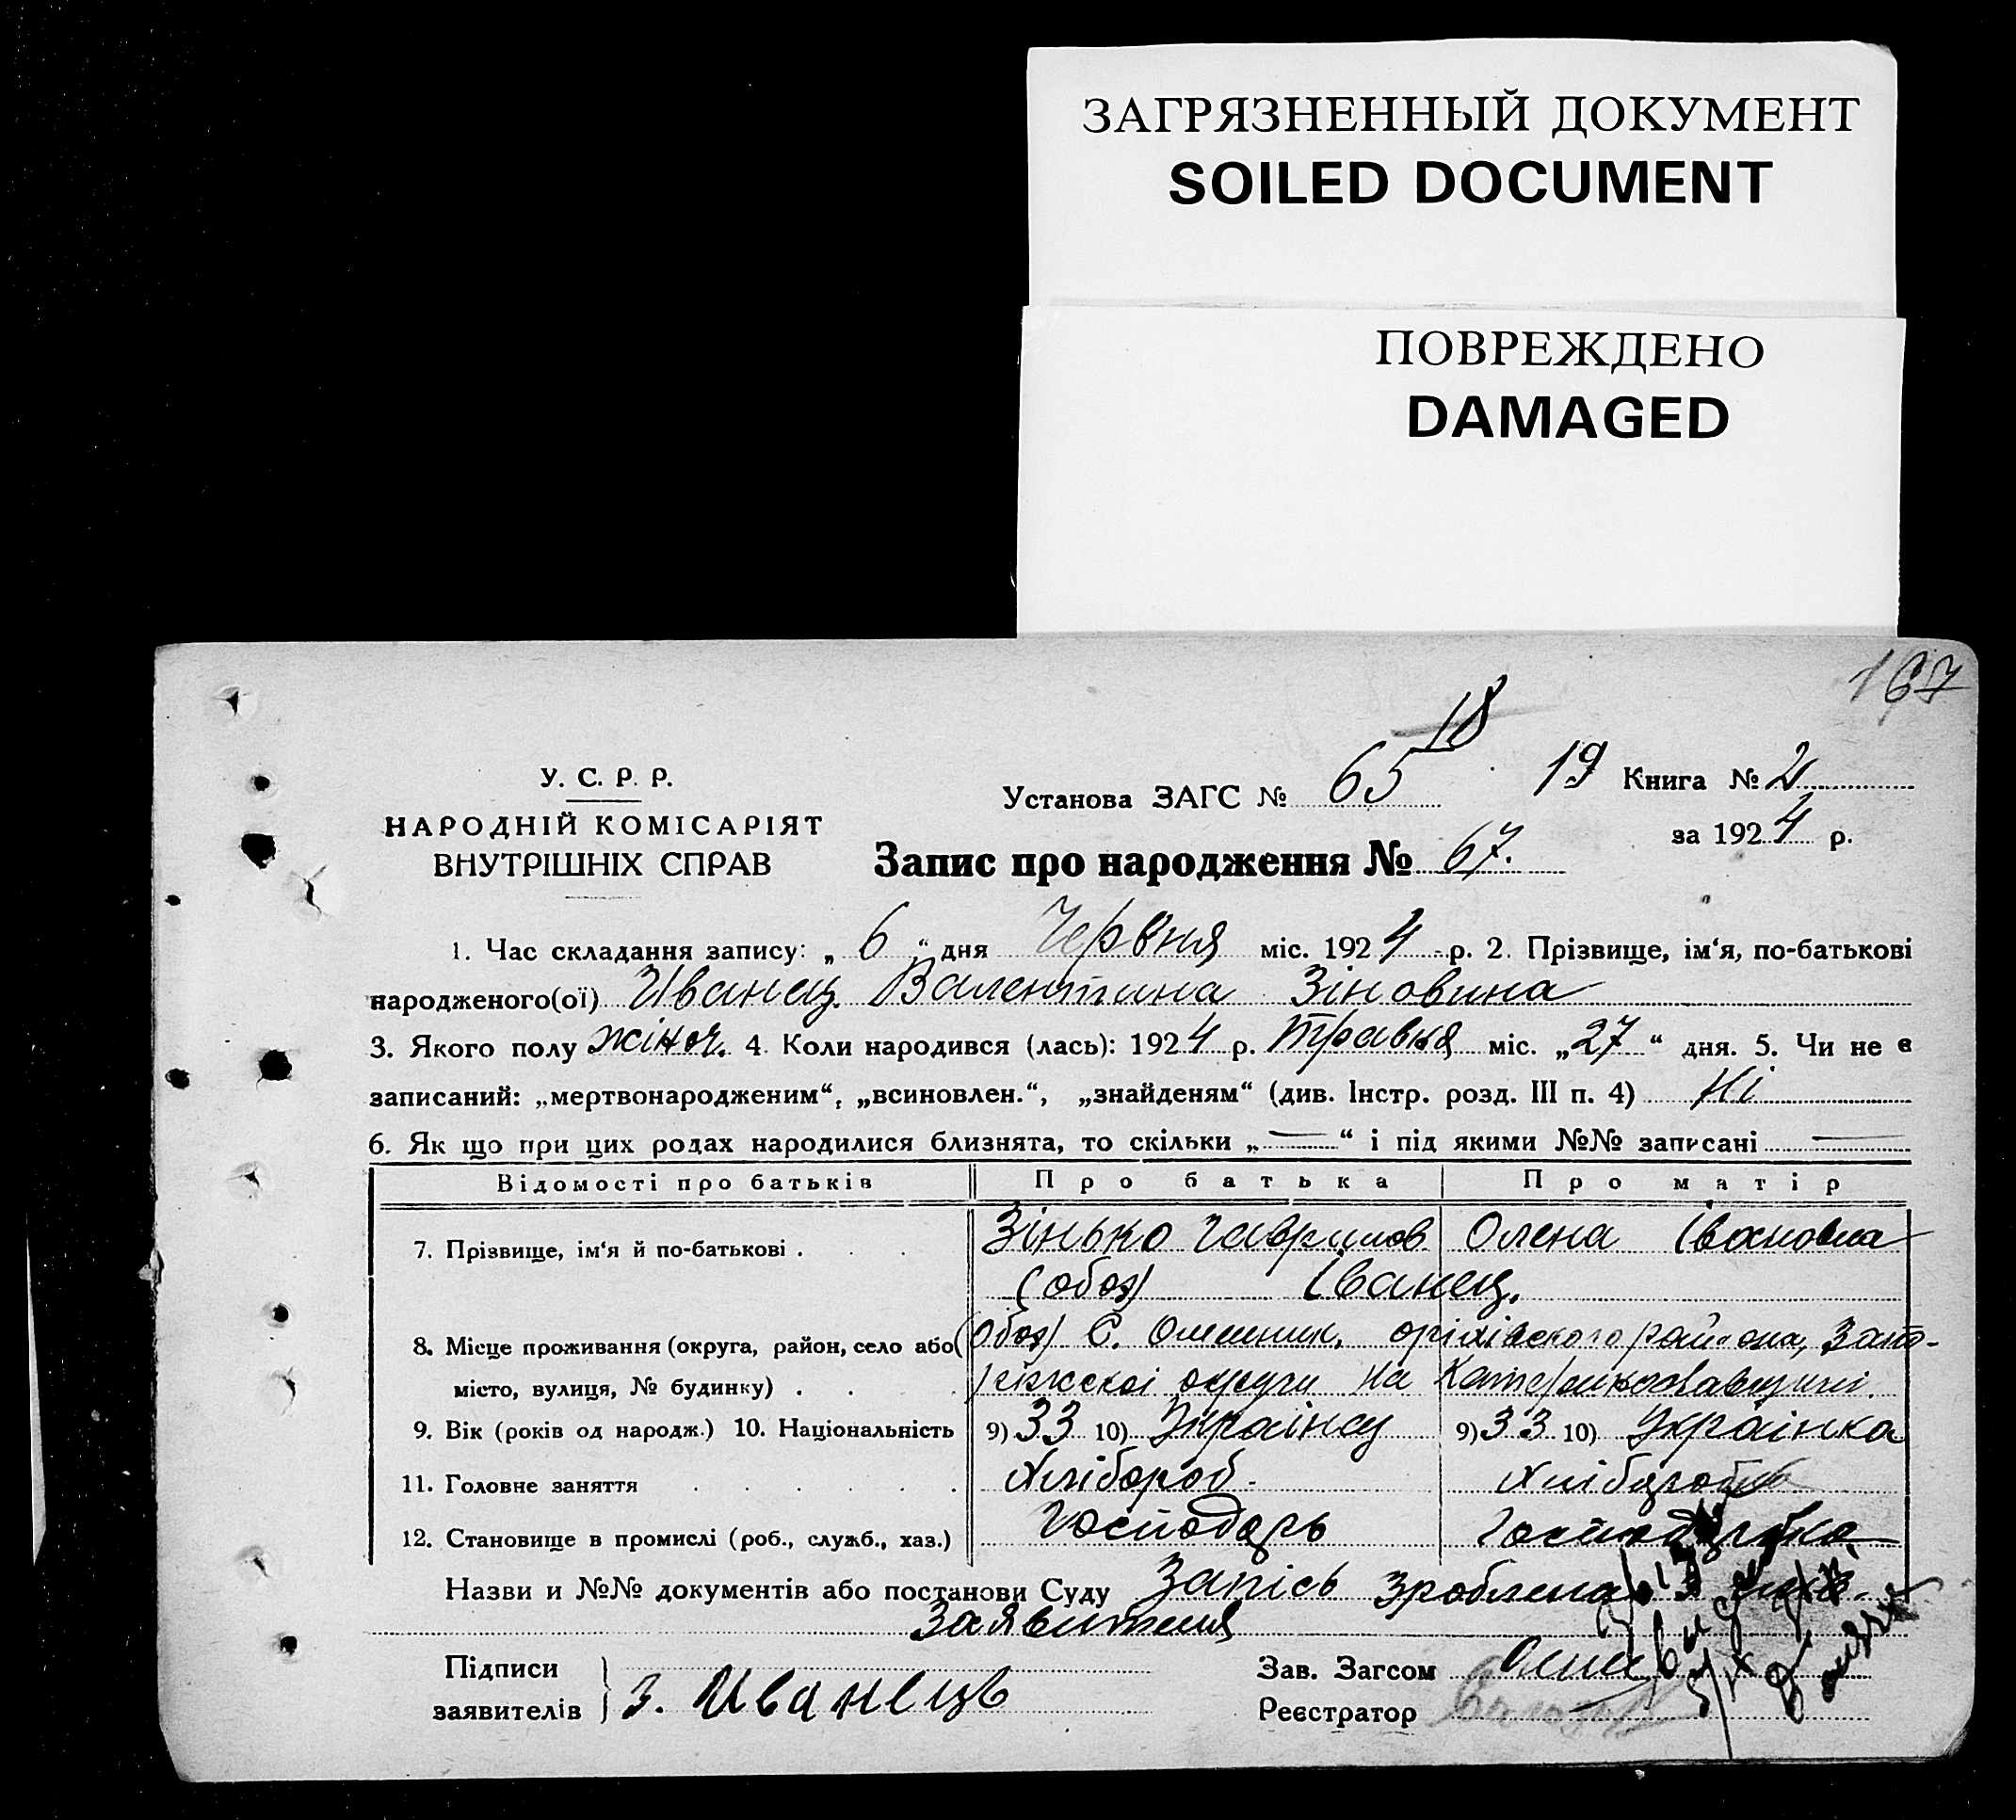 ЗАГРЯЗНЕННЫЙ ДОКУМЕНТ
SOILED DOCUMENT
ПОВРЕЖДЕНО
DAMAGED
167
18
У. С. Р. Р.
НАРОДНІЙ КОМІСАРІЯТ
ВНУТРІШНІХ СПРАВ
Установа ЗАГС № 65 19 Книга № 2
за 1924 р.
Запис про народження № 67.
1. Час складання запису: „ 6 “ дня Червня міс. 1924 р. 2. Прізвище, ім‘я, по-батькові
народженого(ої) Иванец. Валентина Зіновина
3. Якого полу жіноч. 4. Коли народився (лась): 1924 р. Травня міс. „27“ дня. 5. Чи не є
записаний: „мертвонародженим“, „всиновлен.“, „знайденям“ (див. Інстр. розд. III п. 4) Ні
6. Як що при цих родах народилися близнята, то скільки „—“ і під якими №№ записані —
Відомості про батьків Про батька Про матір
7. Прізвище, ім‘я й по-батькові . . . Зінько Гаврилов Олена Івановна
(обоє) Іванец.
8. Місце проживання (округа, район, село або (обоє) С. оріхівского района, Запо-
місто, вулиця, № будинку) . . . ріжскоі округи на Катеринославщині.
9. Вік (років од народж.) 10. Національність 9) 33 10) Украінец 9) 33 10) Украінка
11. Головне заняття . . . . . . Хлібороб.
12. Становище в промислі (роб., служб., хаз.) Господарь
Назви и №№ документів або постанови Суду Запісь зроблена
Заявителя
Підписи
заявителів } З. Иванець
Зав. Загсом
Реєстратор